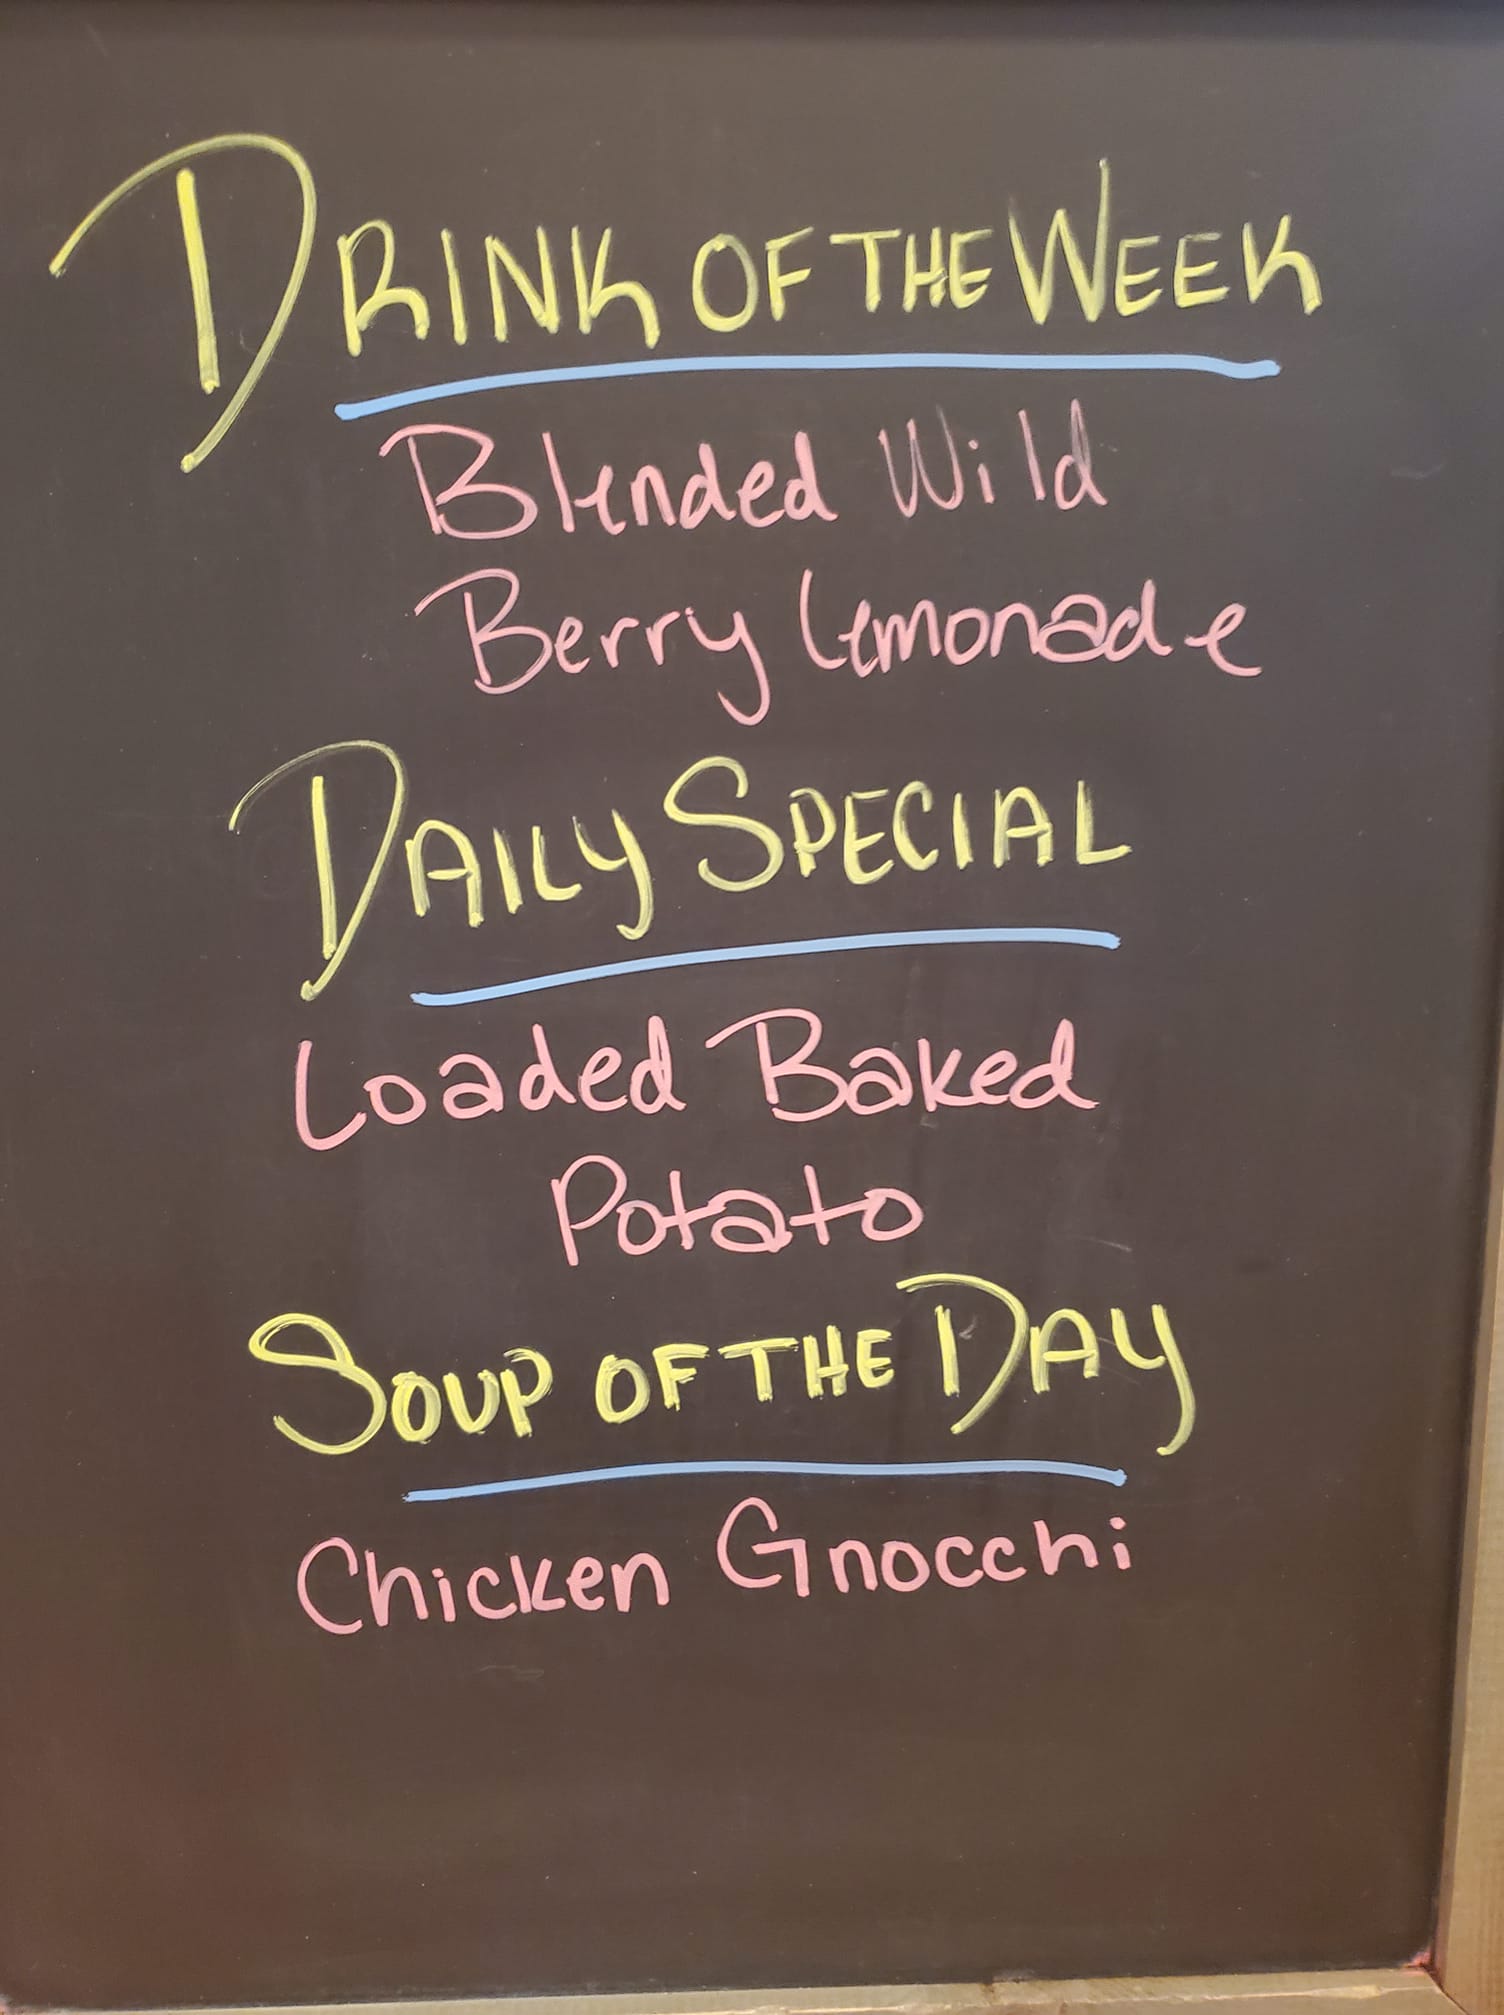 DRINK OF THE WEEK
Blended Wild
Berry Lemonade
DAILY SPECIAL
Loaded Baked
Potato
SOUP OF THE DAY
Chicken Gnocchi